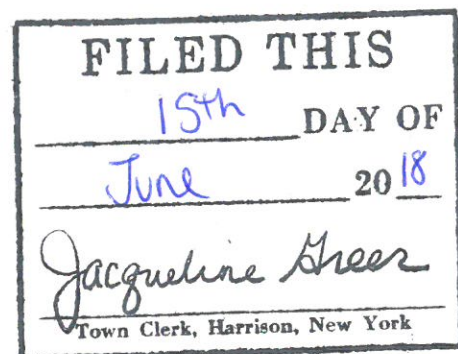 FILED THIS
15th DAY OF
June 2018
Jacqueline Greer
Town Clerk, Harrison, New York